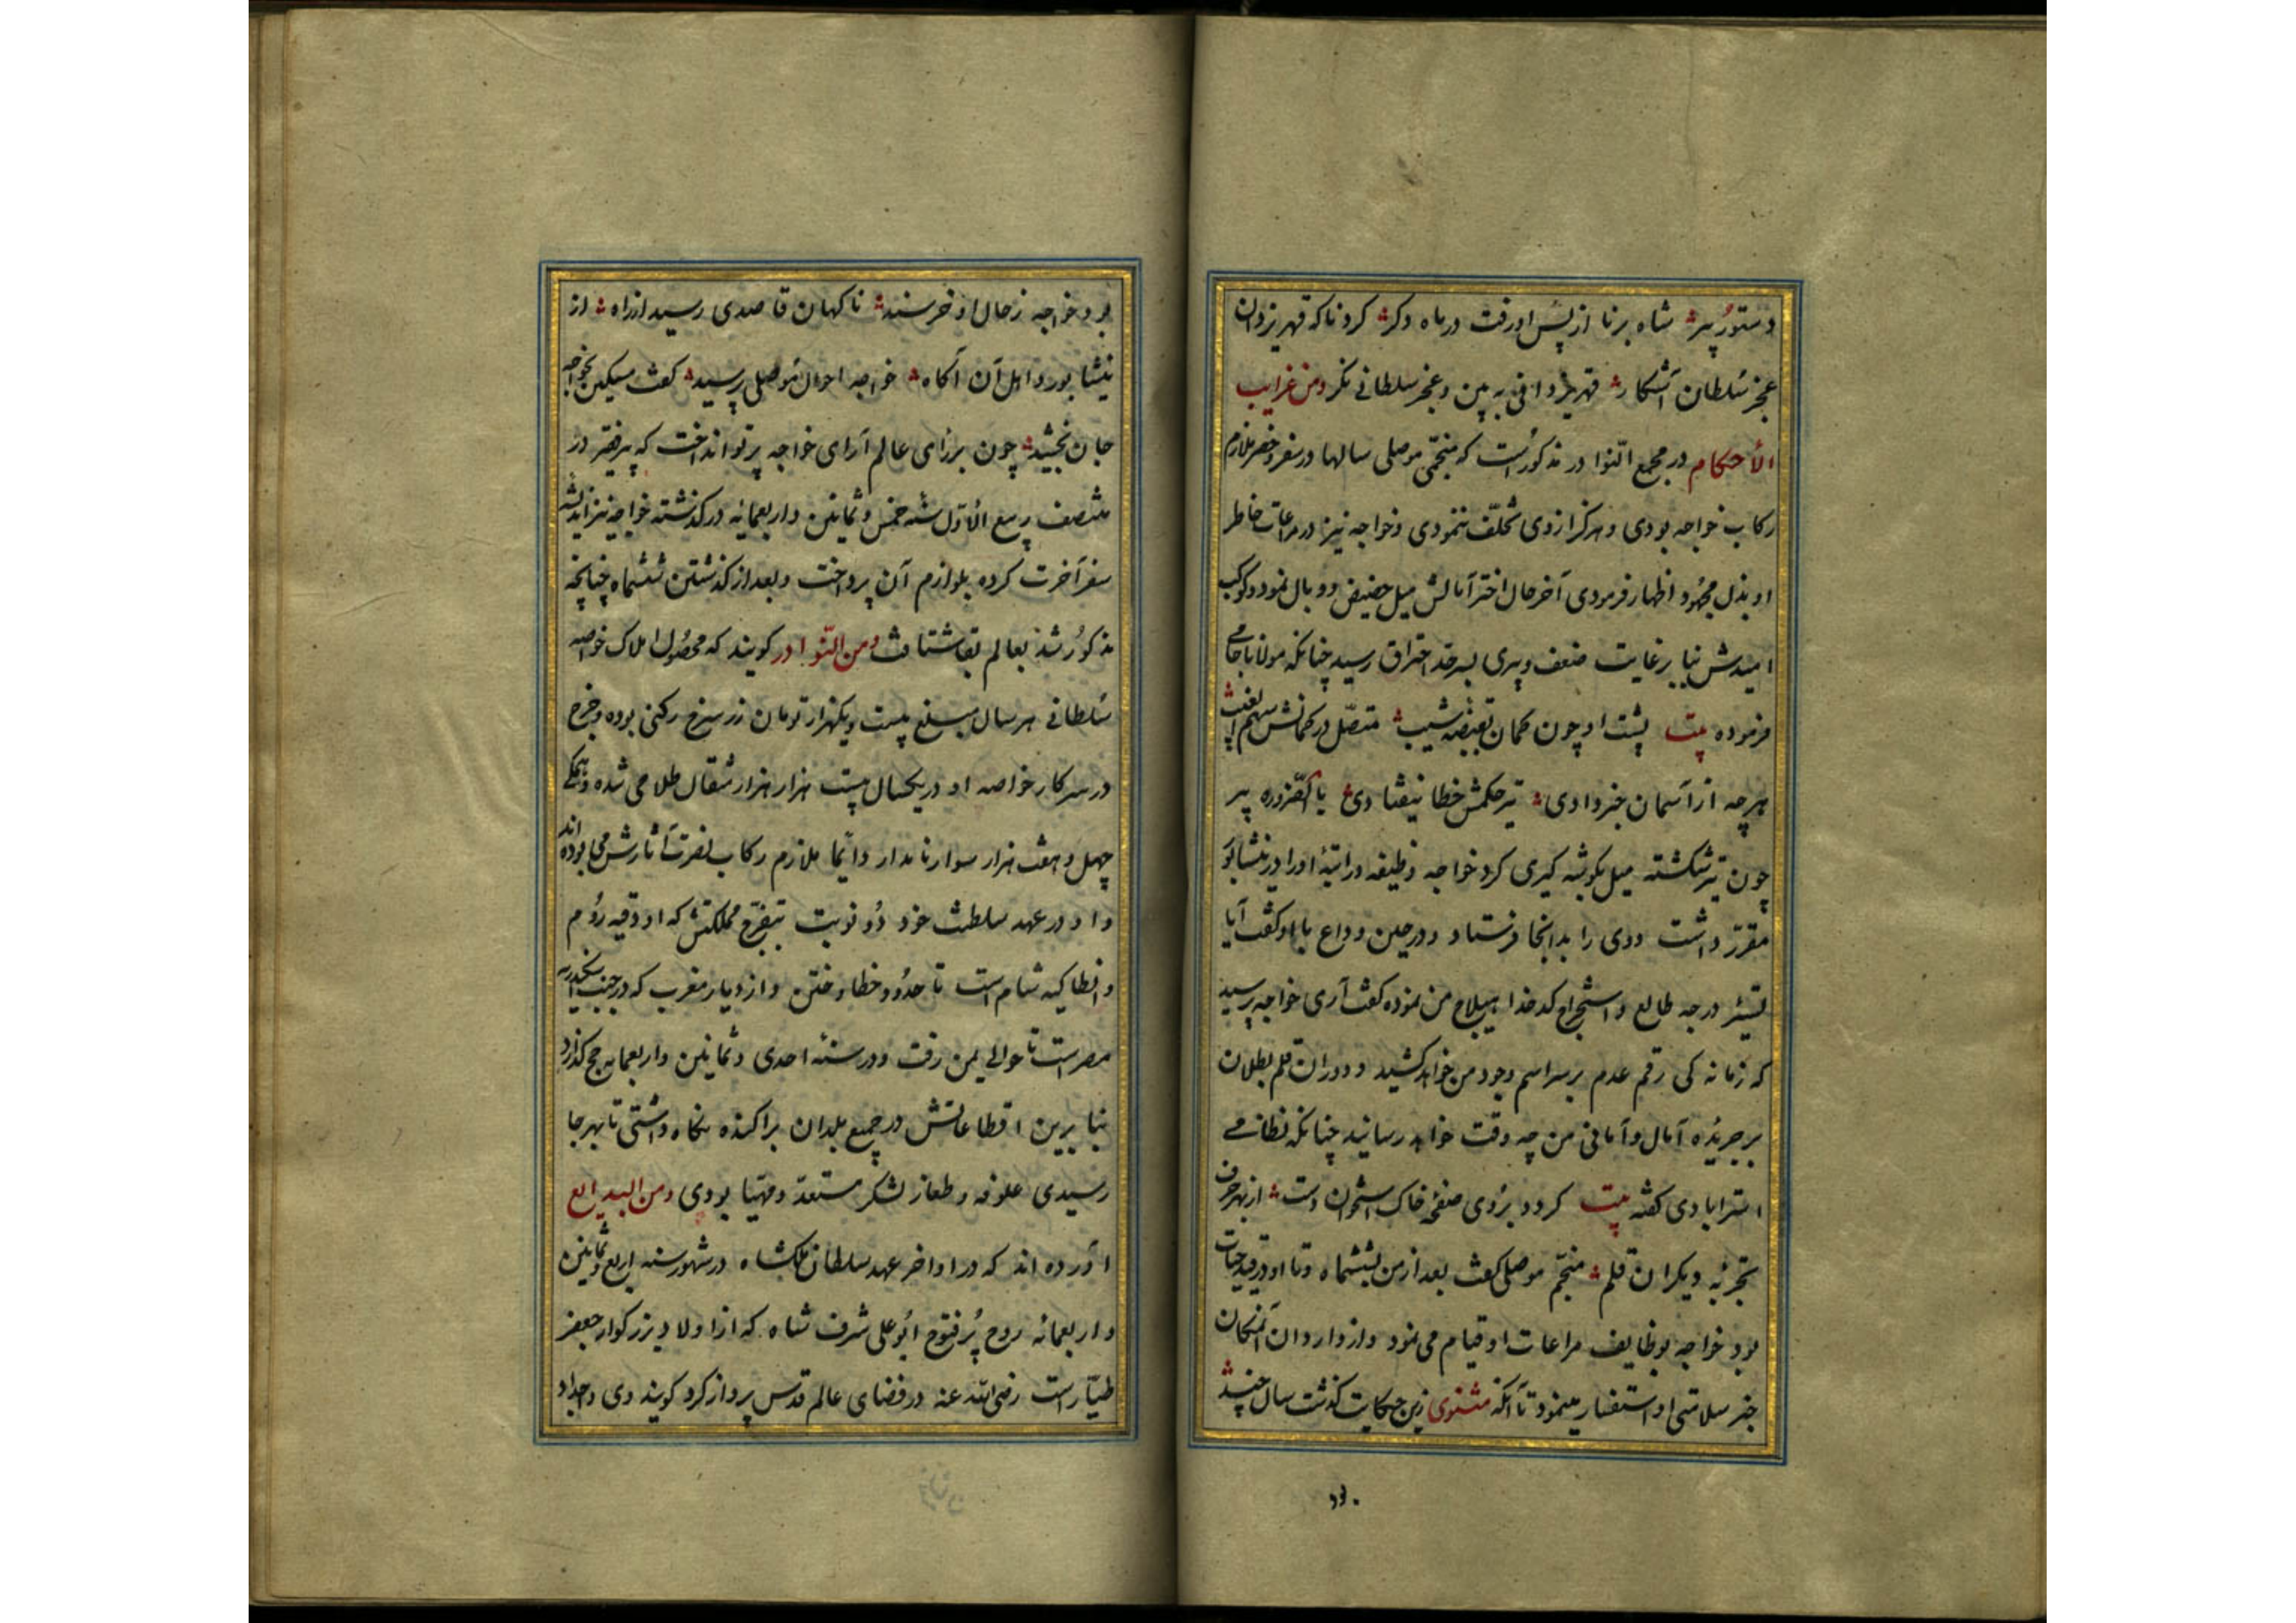 دستور پیر شاه برنا از پس او رفت در ماه دگر کرد ناکه قهر یزدان
عجز سلطان آشکار قهر یزدانی به بین و عجز سلطانی نکر ومن غرایب
الأحکام در مجمع النّوادر مذکورست که منجّمی موصلی سالها در سفر و حضر ملازم
رکاب خواجه بودی و هرکز از وی تخلّف ننمودی و خواجه نیز در مراعات خاطر
او بذل مجهود اظهار فرمودی آخر حال اختر آمالش میل حضیض و وبال نمود و کوکب
امیدش بنا بر غایت ضعف و پیری بسرحد احتراق رسید چنانکه مولانا جامی
فرموده بیت پشت او چون کمان بقبضه شیب متصّل در کمانش سهم الغیب
هرچه از آسمان خبر دادی تیر حکمش خطا نیفتادی بالضّروره پیر
چون تیر شکسته میل بکوشه کیری کرد خواجه وظیفه و راتبۀ او را در نیشابور
مقرّر داشت و وی را بدانجا فرستاد و در حین وداع با او کفت آیا
تسییر درجه طالع و استخراج کدخدا هیلاج من نموده کفت آری خواجه پرسید
که زمانه کی رقم عدم بر سر اسم وجود من خواهد کشید و دوران قلم بطلان
بر جریده آمال و آمانی من چه وقت خواهد رسانید چنانکه نظامی
استرابادی کفته بیت کرد بر روی صفحۀ خاک استخوان دست از بهر حرف
تجربۀ دیکران قلم منجّم موصلی کفت بعد از من بششماه و تا او در قید حیات
بود خواجه بوظایف مراعات او قیام می نمود و از واردان آنمکان
خبر سلامتی او استفسار مینمود تا آنکه مثنوی زین حکایت کذشت سال چند
۳۳۰
بود خواجه ز حال او خرسند ناکهان قاصدی رسید از راه از
نیشابور و اهل آن آکاه خواجه احوال موصلی پرسید کفت مسکین بخواجه
جان بخشید چون بر رای عالم آرای خواجه پرتو انداخت که پیر فقیر در
منتصف ربیع الأوّل سنه خمس و ثمانین و اربعمائه درکذشته خواجه نیز اندیشۀ
سفر آخرت کرده بلوازم آن پرداخت و بعد از کذشتن ششماه چنانچه
مذکور شد بعالم بقا شتافت ومن النّوادر کویند که محصول املاک خواجه
سلطانی هر سال مبلغ بیست و یکهزار تومان زر سرخ رکنی بوده و خرج
در سرکار خاصه او در یکسال بیست هزار هزار مثقال طلا می شده و همکی
چهل و هفت هزار سوار نامدار دائما ملازم رکاب نصرت آثارش می بوده اند
و او در عهد سلطنت خود دو نوبت بتفرّج مملکتش که از دقیه روم
و انطاکیه شام است تا حدود خطا و ختن و از دیار مغرب که در جنب اسکندریه
مصر است تا حوالی یمن رفت و در سنه احدی و ثمانین و اربعمایه حج کذارد
بنا برین اقطاعاتش در جمیع بلدان براکنده نکاه داشتی تا بهر جا
رسیدی علوفه و طعام لشکر مستعدّ و مهیّا بودی ومن البدایع
آورده اند که در اواخر عهد سلطان ملکشاه در شهور سنه اربع و ثمانین
و اربعمائه روح پُر فتوح ابوعلی شرف شاه که از اولاد بزرکوار جعفر
طیّار است رضی الله عنه در فضای عالم قدس پرواز کرد کویند وی و اجداد